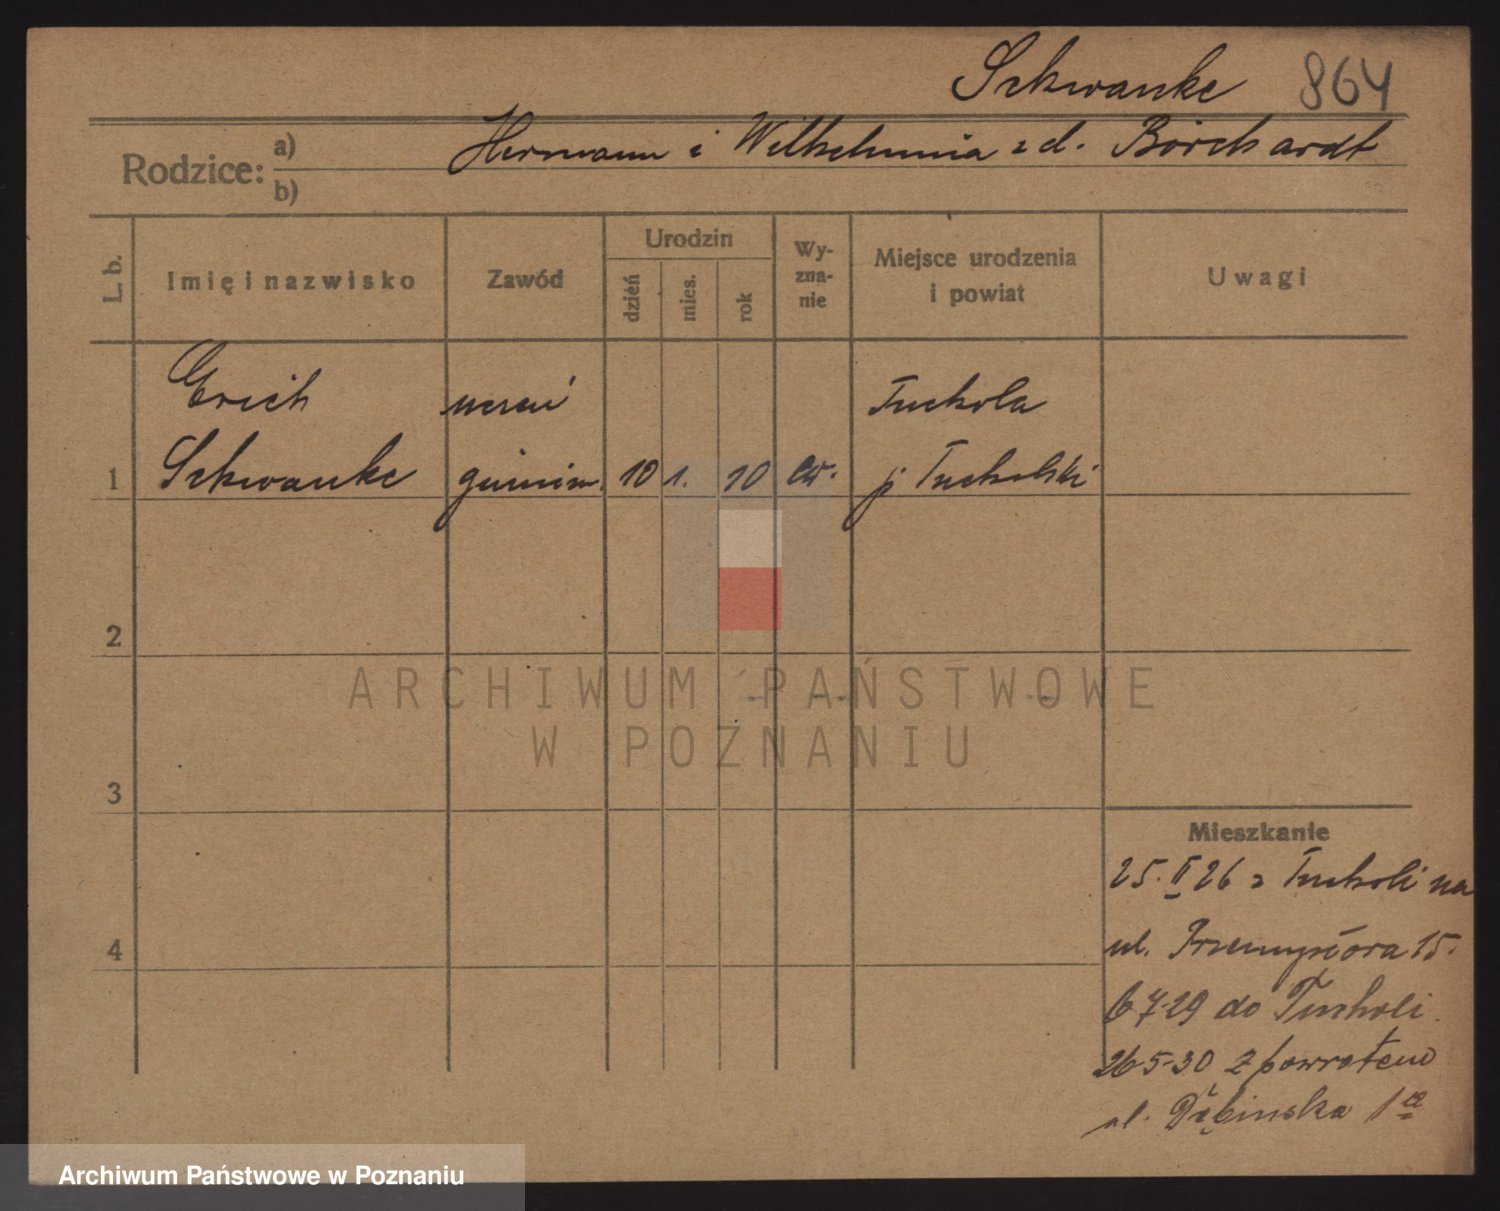 Szkwanke 864
Rodzice: a) Hermann i Wilhelmina z d. Borchardt
b)
L. b. Imię i nazwisko Zawód Urodzin dzień mies. rok Wyznanie Miejsce urodzenia i powiat Uwagi
Erich uczeń Tuchola
1 Szkwanke gimnaz. 10 1. 10 ew. p. Tucholski
2
ARCHIWUM PAŃSTWOWE
W POZNANIU
3
Mieszkanie
25. II 26 z Tucholi na
4
ul. Przemysłowa 15.
6 7-29 do Tucholi.
26-5-30 z powrotem
ul. Dębinska 1a
Archiwum Państwowe w Poznaniu